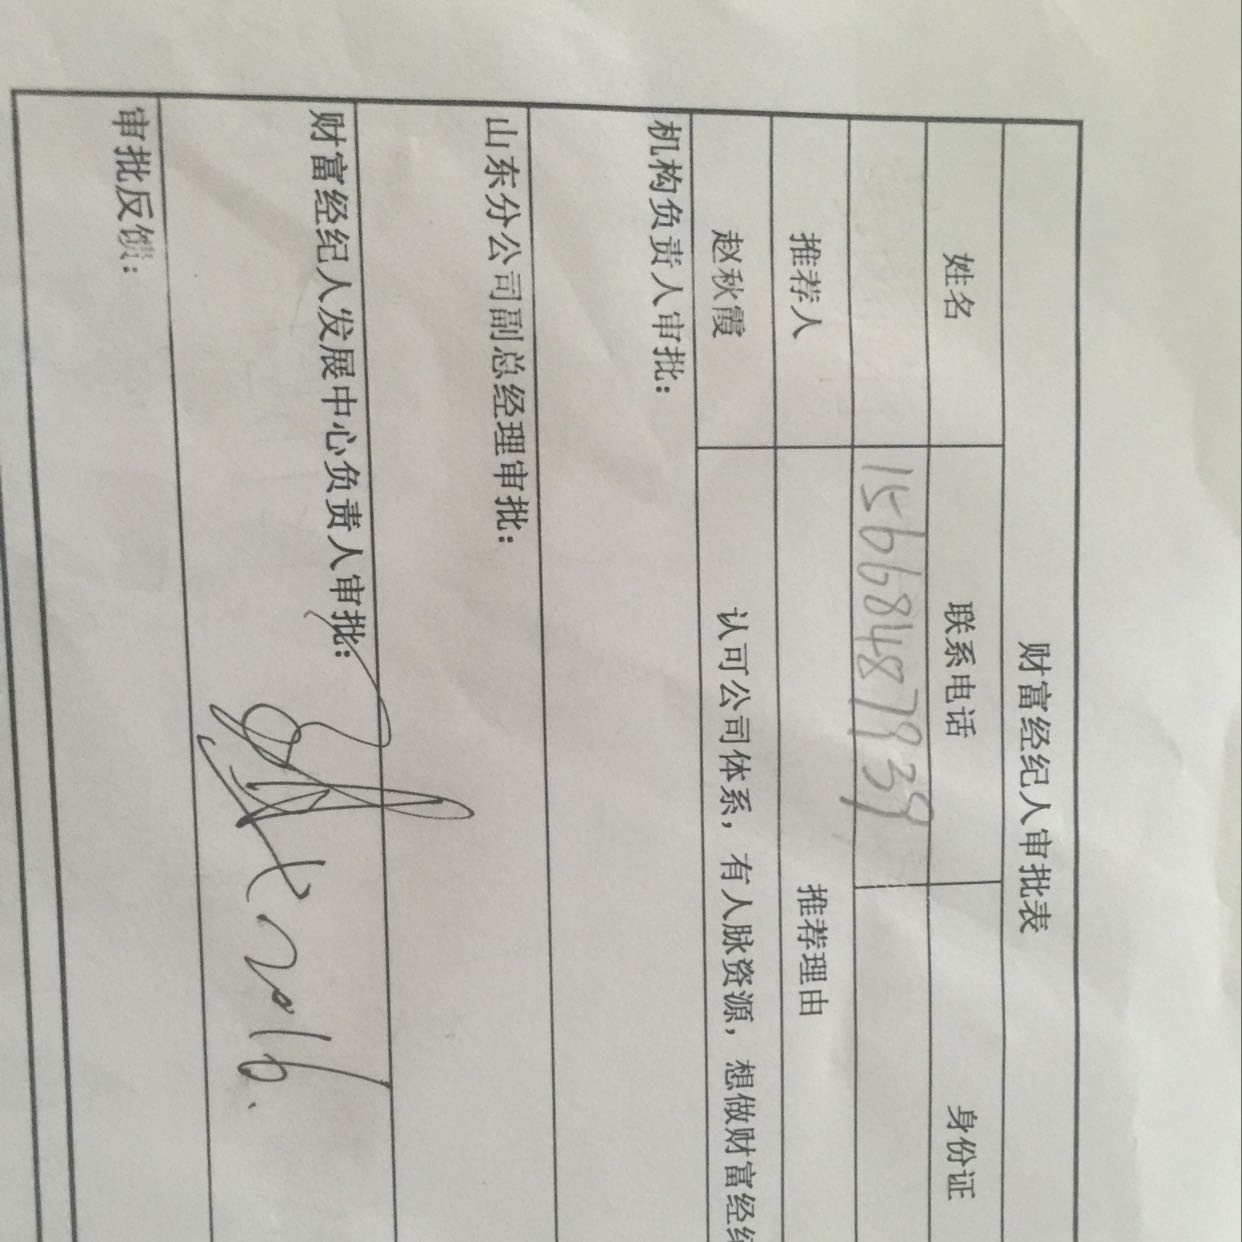 财富经纪人审批表
姓名 联系电话 身份证
15668487939
推荐人 推荐理由
赵秋霞 认可公司体系，有人脉资源，想做财富经纪
机构负责人审批：
山东分公司副总经理审批：
财富经纪人发展中心负责人审批：
2016.
审批反馈：